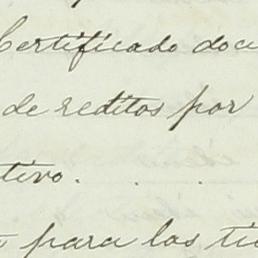 Certificado docu
de reditos por
tivo. . .
para las ti